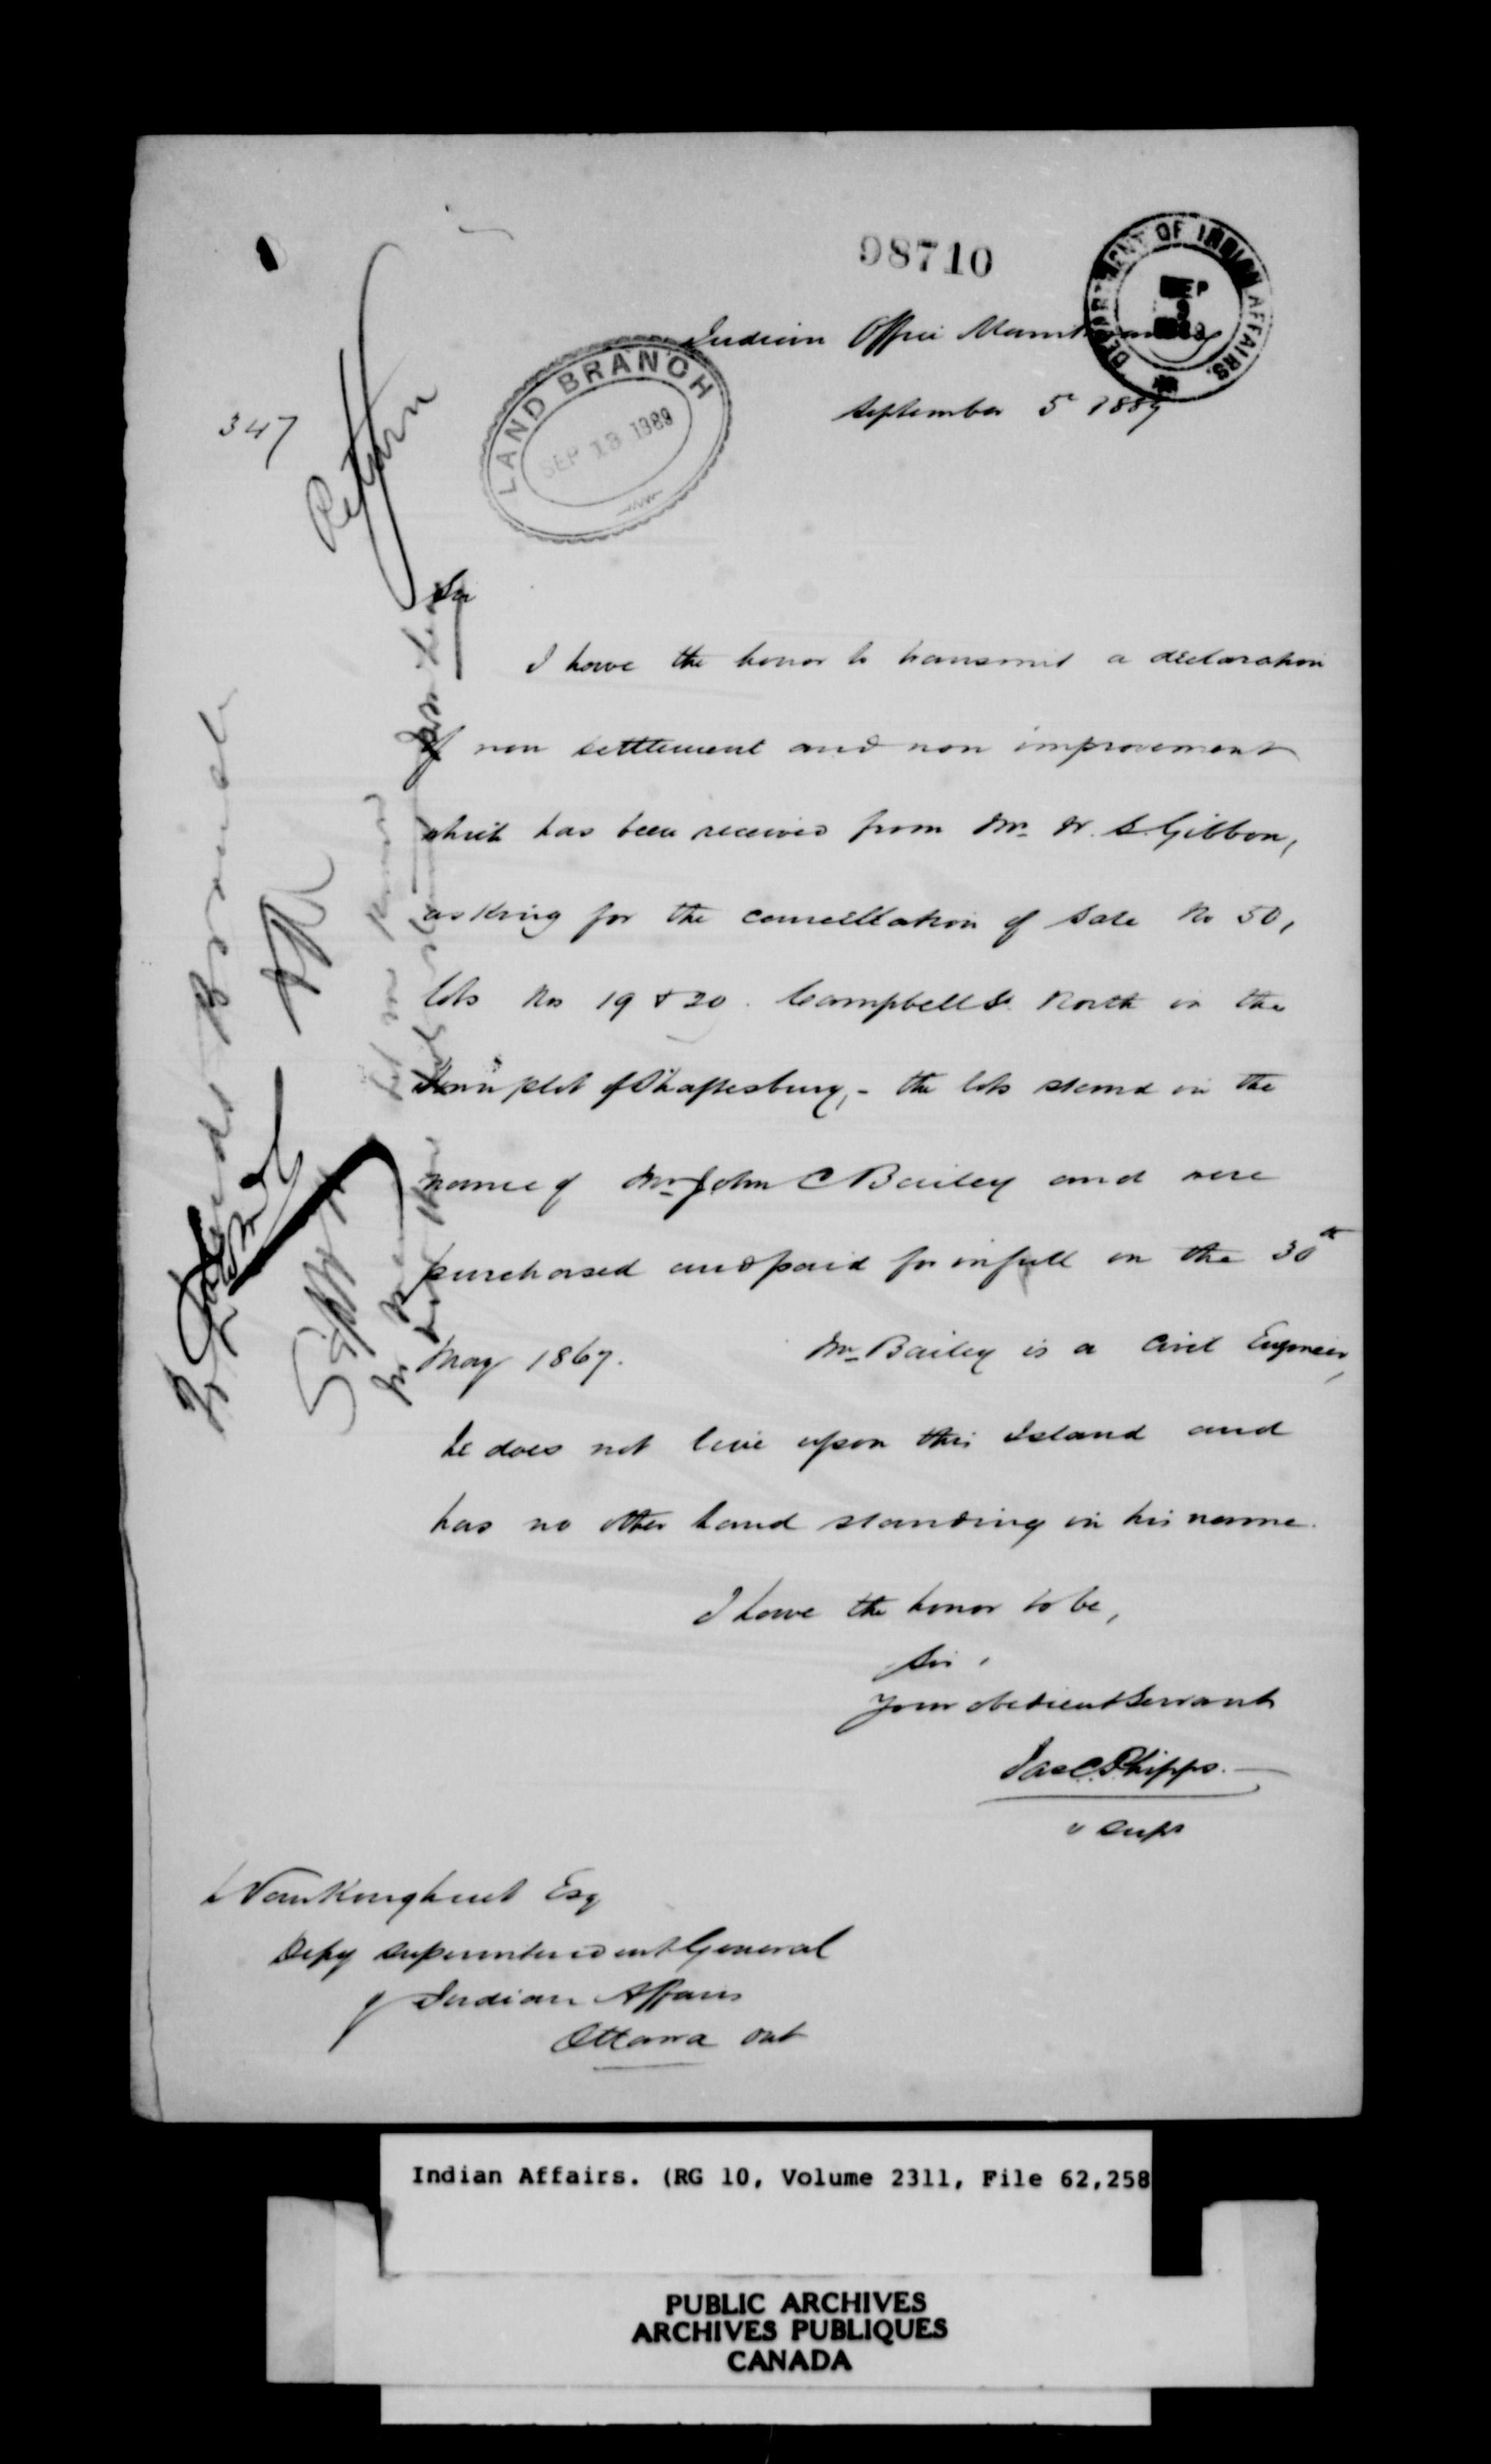 98710
DEPARTMENT OF INDIAN AFFAIRS.
SEP
9
1889
Indian Office
September 5 1889
LAND BRANCH
SEP 13 1889
347
Return
Sir
I have the honor to transmit a declaration
of non setttement and non improvement
which has been received from Mr. W. S. Gibbon,
asking for the cancellation of Sale No 50,
lots Nos 19 & 20. Campbell St North in the
Town plot of Shaftesbury, - the lots stand in the
name of Mr John C Bailey and were
purchased and paid for in full on the 30th
May 1867. Mr Bailey is a Civil Engineer,
he does not live upon this Island and
has no other land standing in his name.
I have the honor to be,
Sir,
Your obedient Servant
Jas C. Phipps.
V Supt
L Vankoughnet Esq
Depy Superintendent General
of Indian Affairs
Ottawa Ont
Indian Affairs. (RG 10, Volume 2311, File 62,258
PUBLIC ARCHIVES
ARCHIVES PUBLIQUES
CANADA